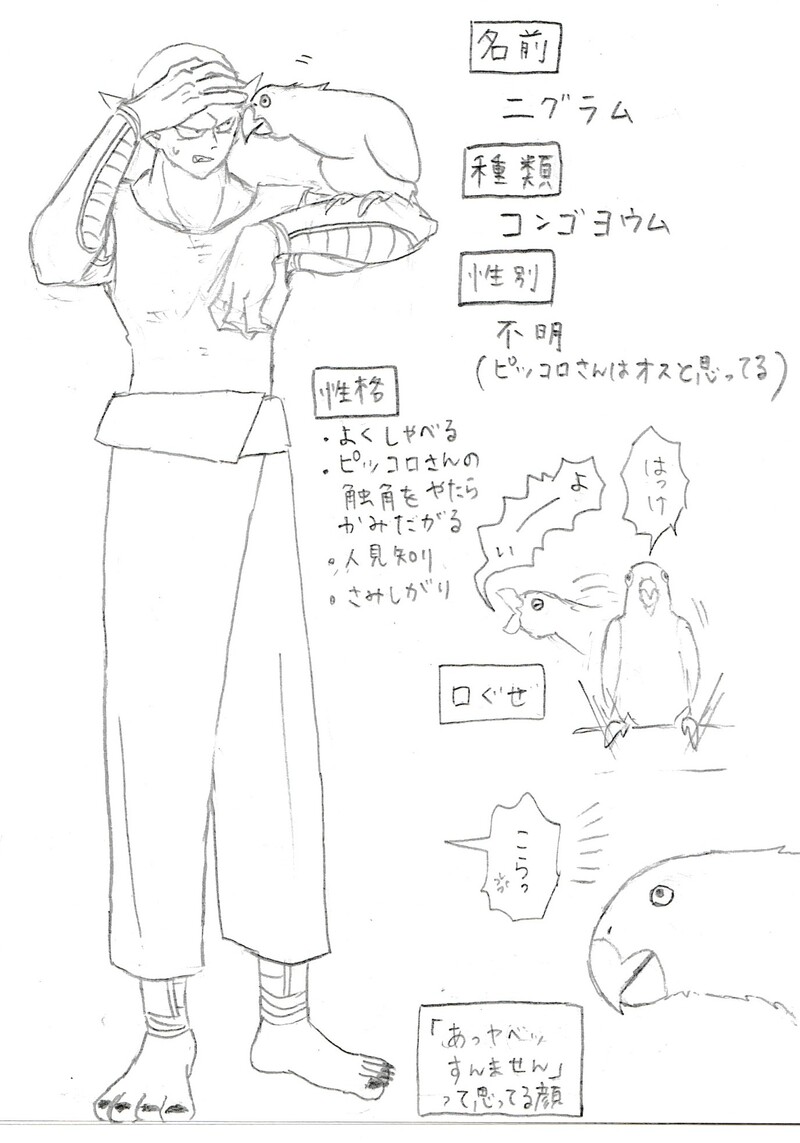 名前
ニグラム
種類
コンゴヨウム
性別
不明
(ピッコロさんはオスと思ってる)
性格
・よくしゃべる
・ピッコロさんの
触角をやたら
かみたがる
・人見知り
・さみしがり
はっけ
よーい
口ぐせ
こらっ
「あっヤベッ
すんません」
って思ってる顔